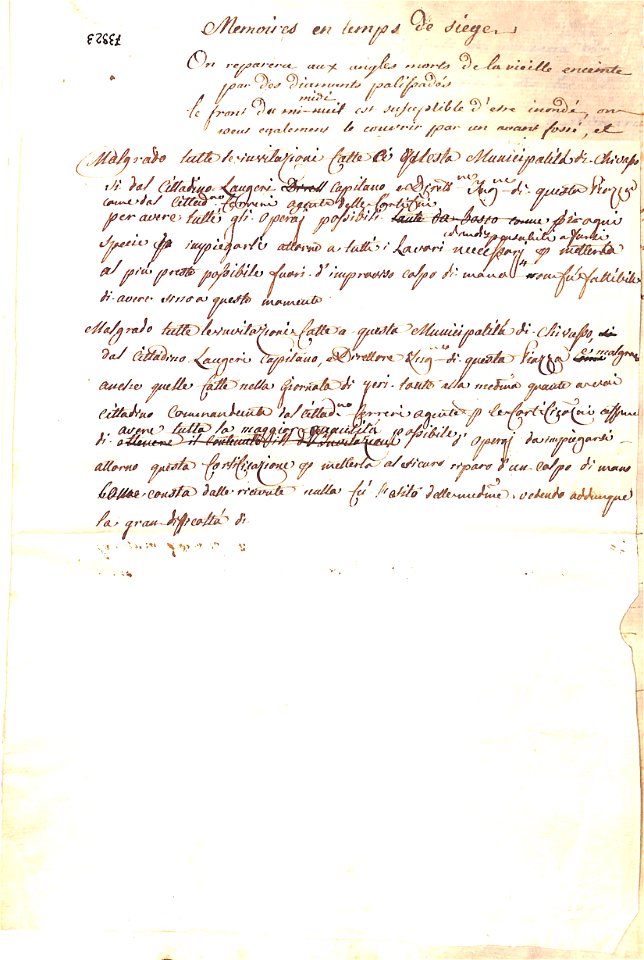 73823
Memoires en temps de siege
On reparera aux angles morts de la vieille enceinte
par des diamants palissadés
midi
le front du mi-nuit est susceptible d'etre inondé, on
peut egalement le couvrir par un avant fossé, et
Malgrado tutte le invitazioni fatte a questa Municipalità di Chivasso
si dal Cittadino Laugeri Dirett Capitano, e Dirett.re di questa Piazza
come dal Cittad.no Ferreri agente delle fortificni
per avere tutti gli operaj possibili tanto da basto come di ogni
specie impiegarsi attorno a tutti i Lavori necessarj per metterla
al più presto possibile fuori d'improvviso colpo di mano non fu fattibile
di avere sino a questo momento
Malgrado tutte le invitazioni fatte a questa Municipalità di Chivasso,
dal Cittadino Laugeri Capitano, e Direttore di questa Piazza malgrado
anche quelle fatte nella Giornata di jeri tanto alla medma quanto a voi
Cittadino Commandante dal Cittad.no Ferreri agente per le fortificazni affine
avere tutta la maggior quantità possibile
di ottenere il contenuto operaj da impiegarsi
attorno questa fortificazione per metterla al sicuro riparo d'un colpo di mano
come consta dalle ricevute nulla fu delle medme, vedendo addunque
la gran difficoltà di